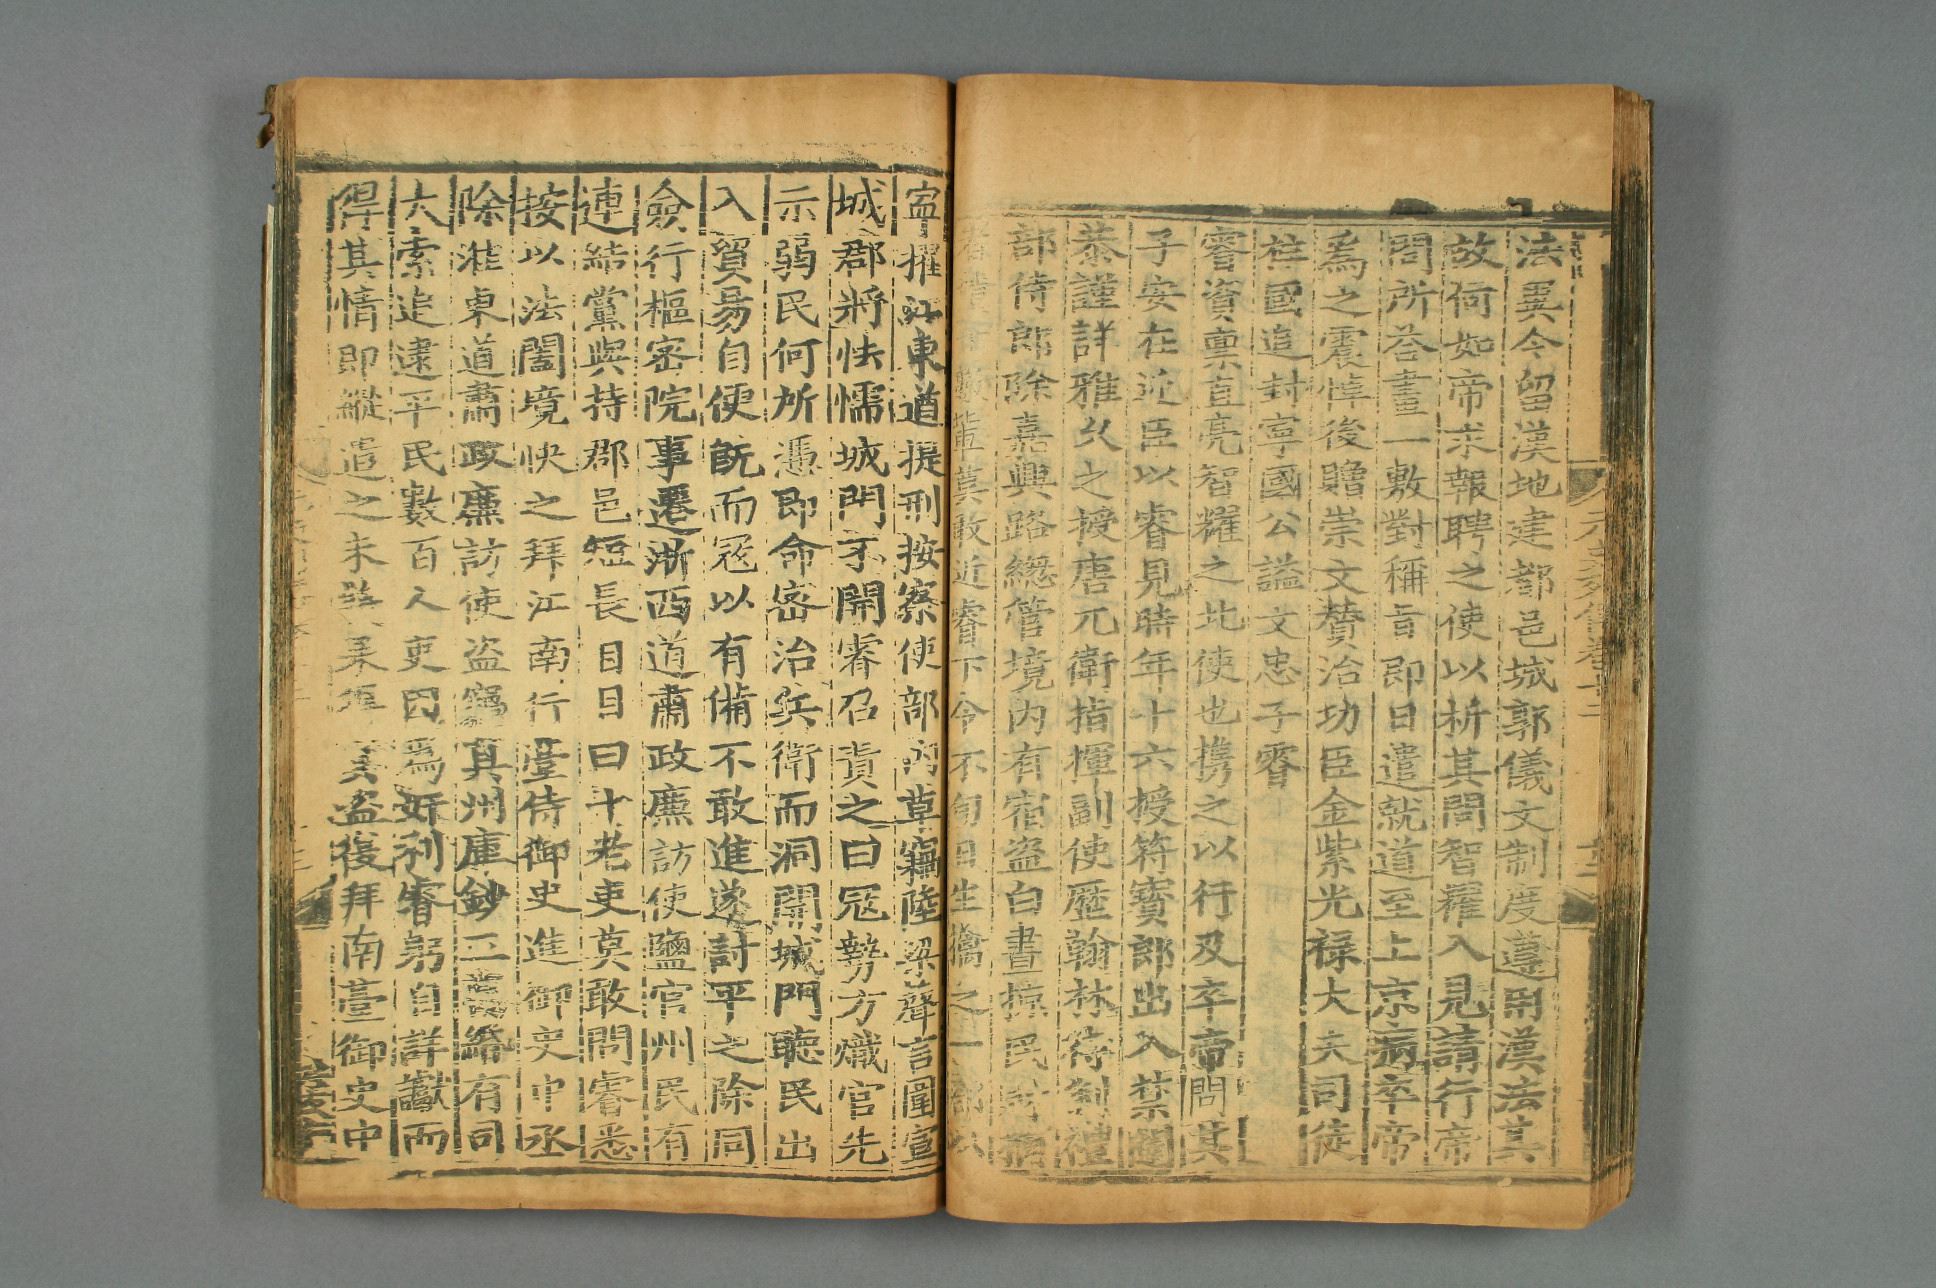 法異今留漢地建都邑城郭儀文制度遵用漢法其
故何如帝求報聘之使以析其問智耀入見請行帝
問所荅畫一敷對稱旨即日遣就道至上京病卒帝
爲之震悼後贈崇文賛治功臣金紫光禄大夫司徒
柱國追封寧國公謚文忠子睿
睿資禀直亮智耀之北使也携之以行及卒帝問其
子安在近臣以睿見時年十六授符寳郎出入禁闥
恭謹詳雅久之授唐兀衛指揮副使歷翰林待制禮
部侍郎除嘉興路總管境内有宿盗白晝掠民財捕
者積百數輩莫敢近睿下令不旬日生擒之一郡以
寧擢江東道提刑按察使部内草竊陸梁聲言圍宣
城郡將怯懦城門不開睿召責之曰冦勢方熾官先
示弱民何所憑即命密治兵衛而洞開城門聽民出
入貿易自便既而冦以有備不敢進遂討平之除同
僉行樞密院事遷浙西道肅政廉訪使鹽官州民有
連結黨與持郡邑短長目目曰十老吏莫敢問睿悉
按以法闔境快之拜江南行臺侍御史進御史中丞
除淮東道肅政廉訪使盗竊真州庫鈔三萬緡有司
大索追逮平民數百人吏因爲奸利睿躬自詳讞而
得其情即縱遣之未幾果得真盗復拜南臺御史中
元史列傳卷十二